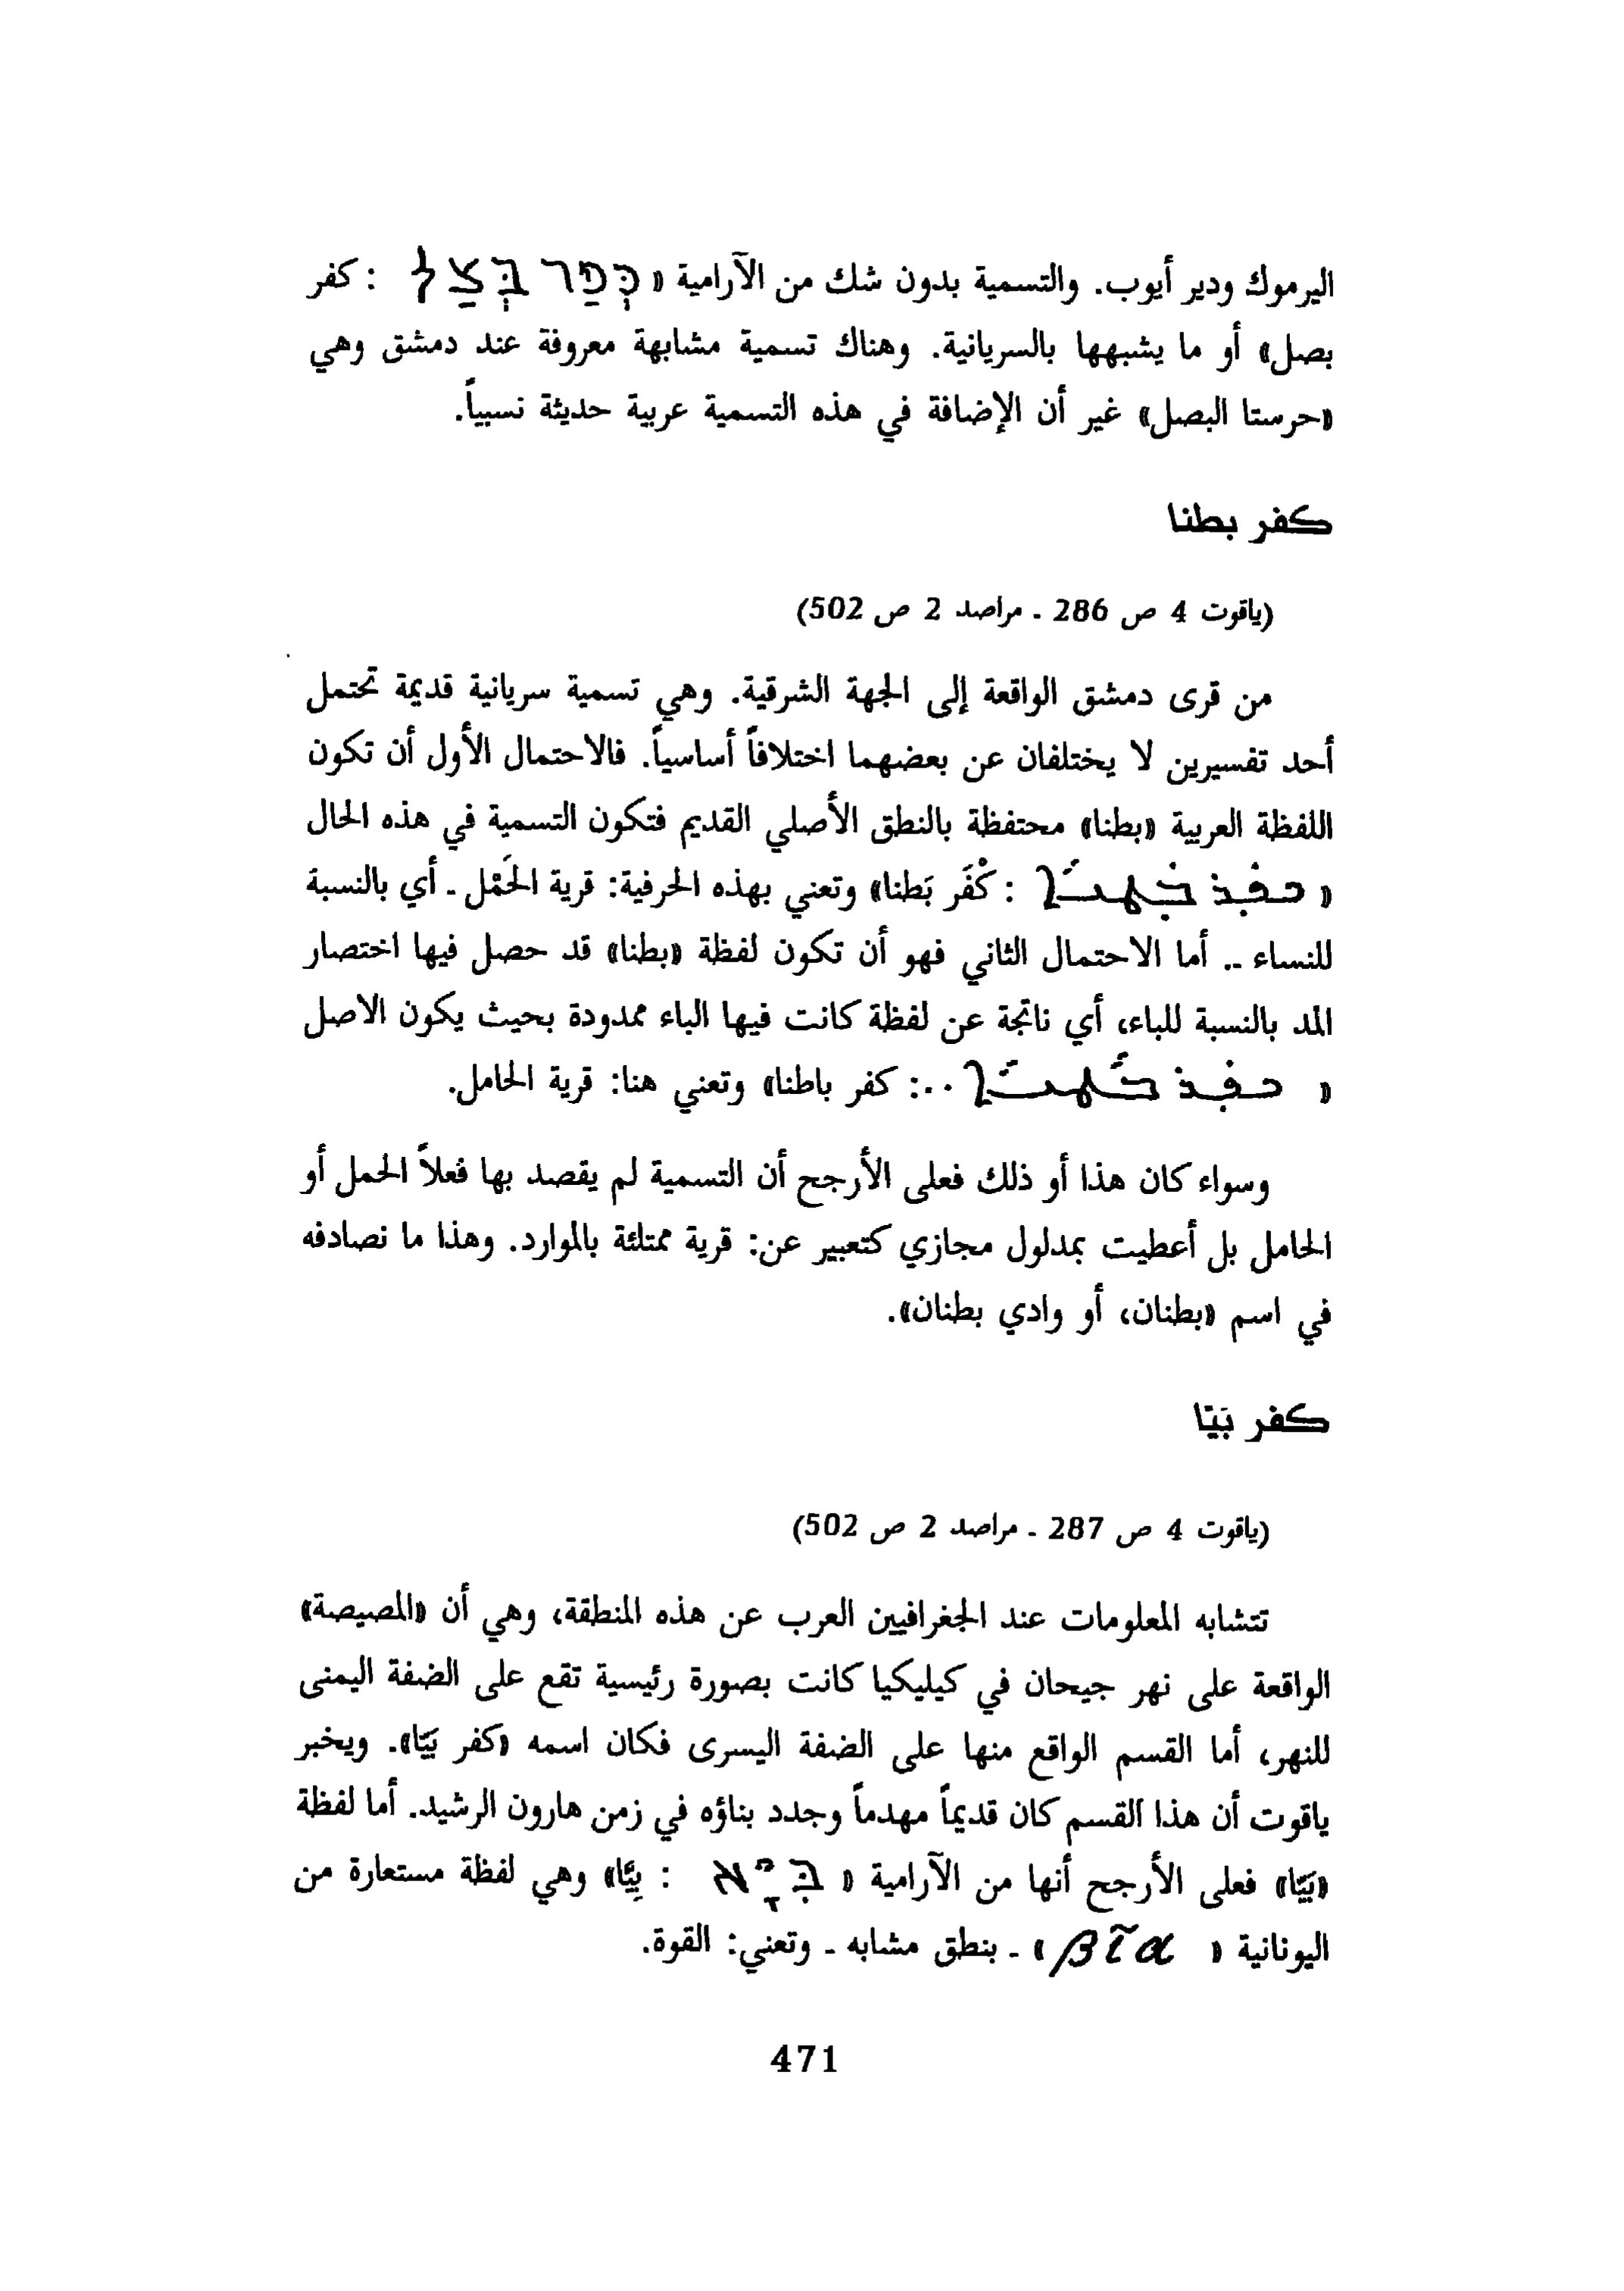 اليرموك ودير أيوب. والتسمية بدون شك من الآرامية «כְּפַר בְּצַל : كفر
بصل» أو ما يشبهها بالسريانية. وهناك تسمية مشابهة معروفة عند دمشق وهي
«حرستا البصل» غير أن الإضافة في هذه التسمية عربية حديثة نسبياً.
كفر بطنا
(ياقوت 4 ص 286 - مراصد 2 ص 502)
من قرى دمشق الواقعة إلى الجهة الشرقية. وهي تسمية سريانية قديمة تحتمل
أحد تفسيرين لا يختلفان عن بعضهما اختلافاً أساسياً. فالاحتمال الأول أن تكون
اللفظة العربية «بطنا» محتفظة بالنطق الأصلي القديم فتكون التسمية في هذه الحال
« ܟܦܪ ܒܛܢܐ : كْفَر بَطنا» وتعني بهذه الحرفية: قرية الحَمْل - أي بالنسبة
للنساء -. أما الاحتمال الثاني فهو أن تكون لفظة «بطنا» قد حصل فيها اختصار
المد بالنسبة للباء، أي ناتجة عن لفظة كانت فيها الباء ممدودة بحيث يكون الاصل
« ܟܦܪ ܒܛܢܐ ..: كفر باطنا» وتعني هنا: قرية الحامل.
وسواء كان هذا أو ذلك فعلى الأرجح أن التسمية لم يقصد بها فعلاً الحمل أو
الحامل بل أعطيت بمدلول مجازي كتعبير عن: قرية ممتلئة بالموارد. وهذا ما نصادفه
في اسم «بطنان، أو وادي بطنان».
كفر بَيّا
(ياقوت 4 ص 287 - مراصد 2 ص 502)
تتشابه المعلومات عند الجغرافيين العرب عن هذه المنطقة، وهي أن «المصيصة»
الواقعة على نهر جيحان في كيليكيا كانت بصورة رئيسية تقع على الضفة اليمنى
للنهر، أما القسم الواقع منها على الضفة اليسرى فكان اسمه «كفر بَيّا». ويخبر
ياقوت أن هذا القسم كان قديماً مهدماً وجدد بناؤه في زمن هارون الرشيد. أما لفظة
«بَيّا» فعلى الأرجح أنها من الآرامية « בִּיָא : بِيَّا» وهي لفظة مستعارة من
اليونانية « βῖα » - بنطق مشابه - وتعني: القوة.
471